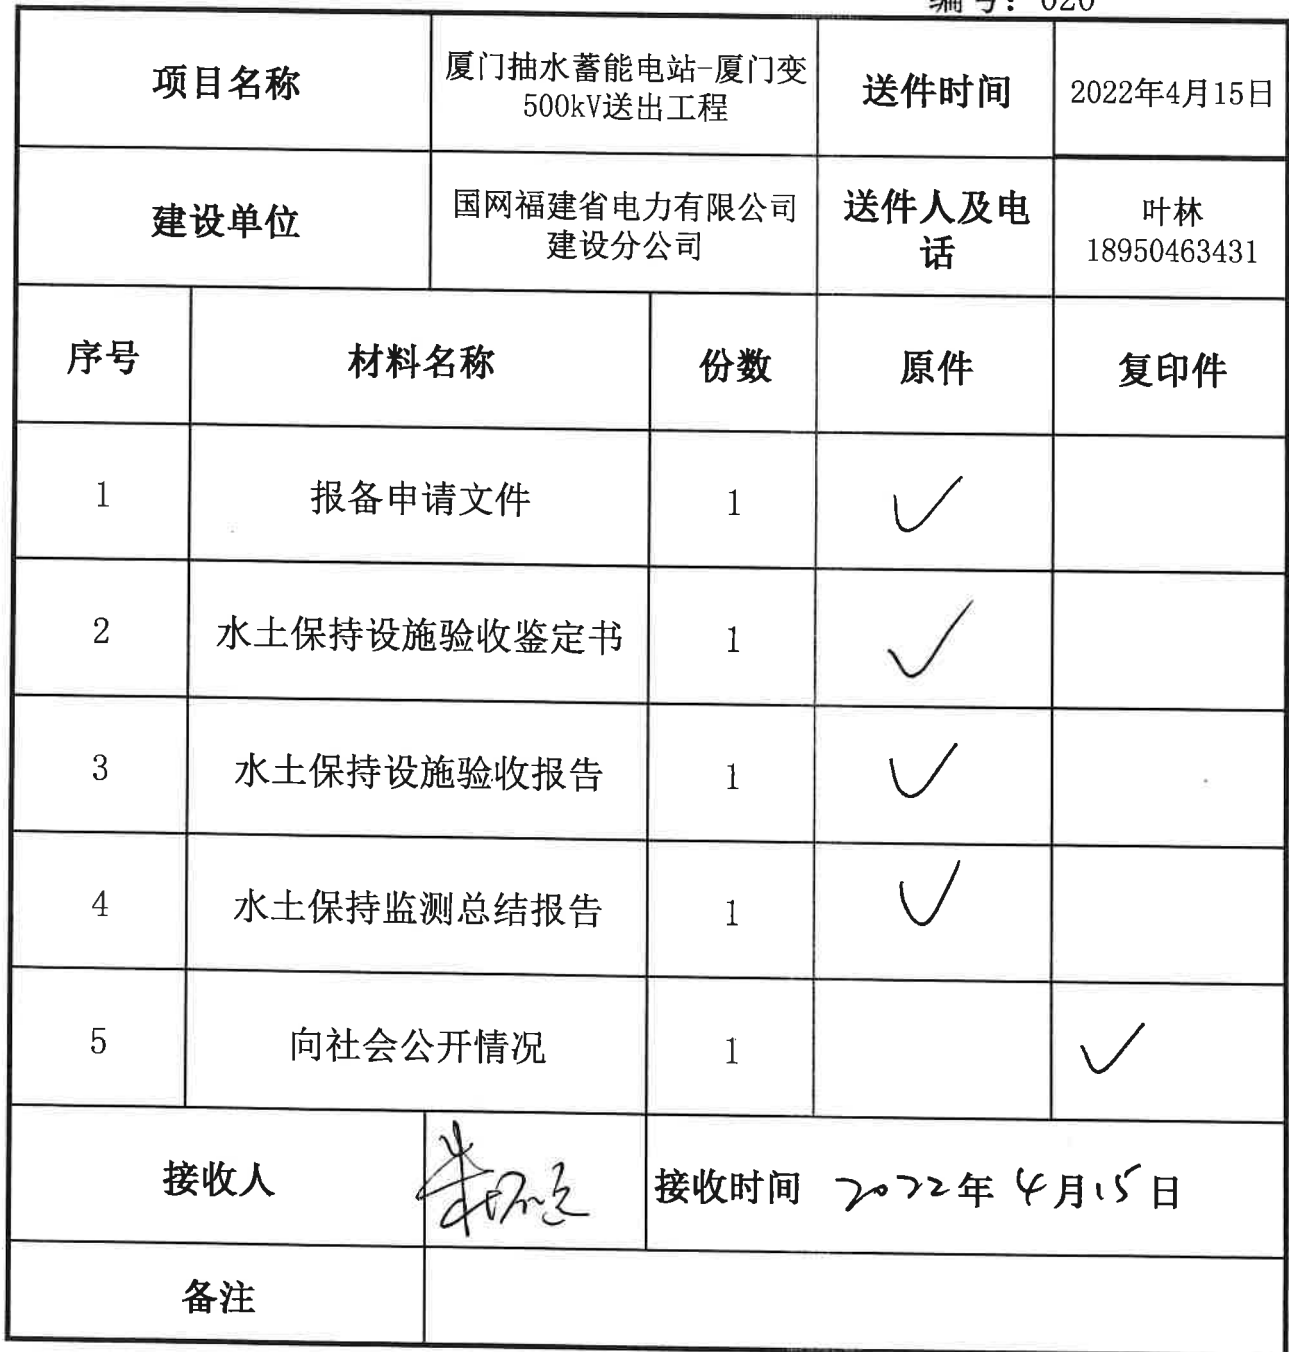 编号：020
项目名称 厦门抽水蓄能电站-厦门变 送件时间 2022年4月15日
500kV送出工程
建设单位 国网福建省电力有限公司 送件人及电 叶林
建设分公司 话 18950463431
序号 材料名称 份数 原件 复印件
1 报备申请文件 1 ✓
2 水土保持设施验收鉴定书 1 ✓
3 水土保持设施验收报告 1 ✓
4 水土保持监测总结报告 1 ✓
5 向社会公开情况 1 ✓
接收人 接收时间 2022年4月15日
备注